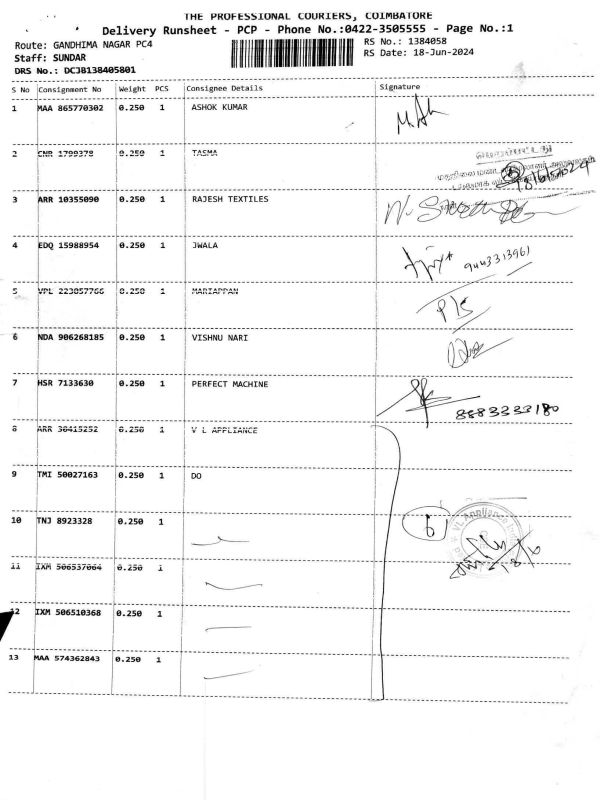 THE PROFESSIONAL COURIERS, COIMBATORE
Delivery Runsheet - PCP - Phone No.:0422-3505555 - Page No.:1
Route: GANDHIMA NAGAR PC4 RS No.: 1384058
Staff: SUNDAR RS Date: 18-Jun-2024
DRS No.: DCJB138405801
S No Consignment No Weight PCS Consignee Details Signature
1 MAA 865770302 0.250 1 ASHOK KUMAR
2 CNR 1799378 0.250 1 TASMA
3 ARR 10355090 0.250 1 RAJESH TEXTILES
4 EDQ 15988954 0.250 1 JWALA 9443313961
5 VPL 223057766 0.250 1 MARIAPPAN
6 NDA 906268185 0.250 1 VISHNU NARI
7 HSR 7133630 0.250 1 PERFECT MACHINE 8883333180
8 ARR 30415252 0.250 1 V L APPLIANCE
9 TMI 50027163 0.250 1 DO
10 TNJ 8923328 0.250 1 6 VL Appliance
11 IXM 506537064 0.250 1
12 IXM 506510368 0.250 1
13 MAA 574362843 0.250 1